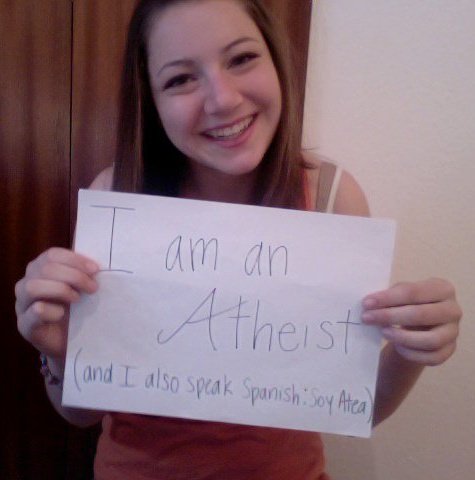 I am an
Atheist
(and I also speak Spanish: Soy Atea)